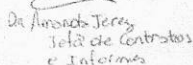 Da Amanda Jerez
Jefa de Contratos
e Informes